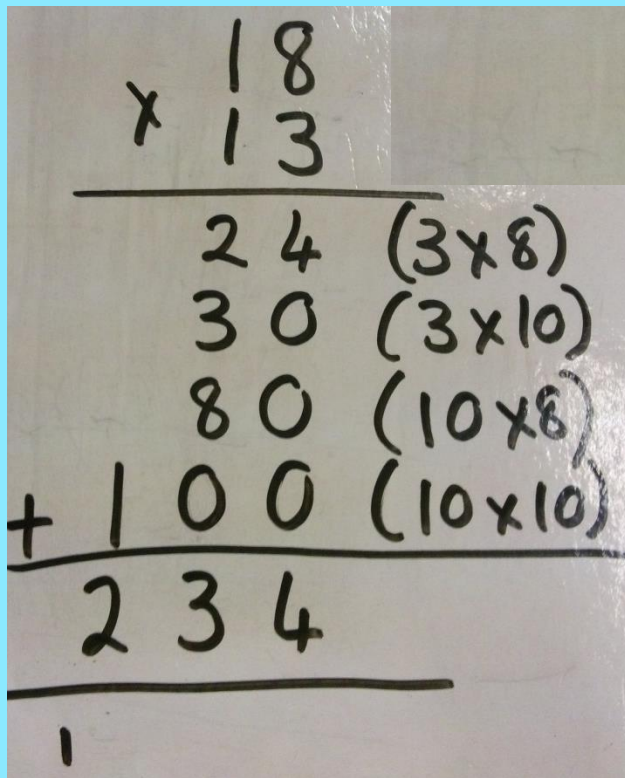 18
x 13
24 (3x8)
30 (3x10)
80 (10x8)
+ 100 (10x10)
234
1